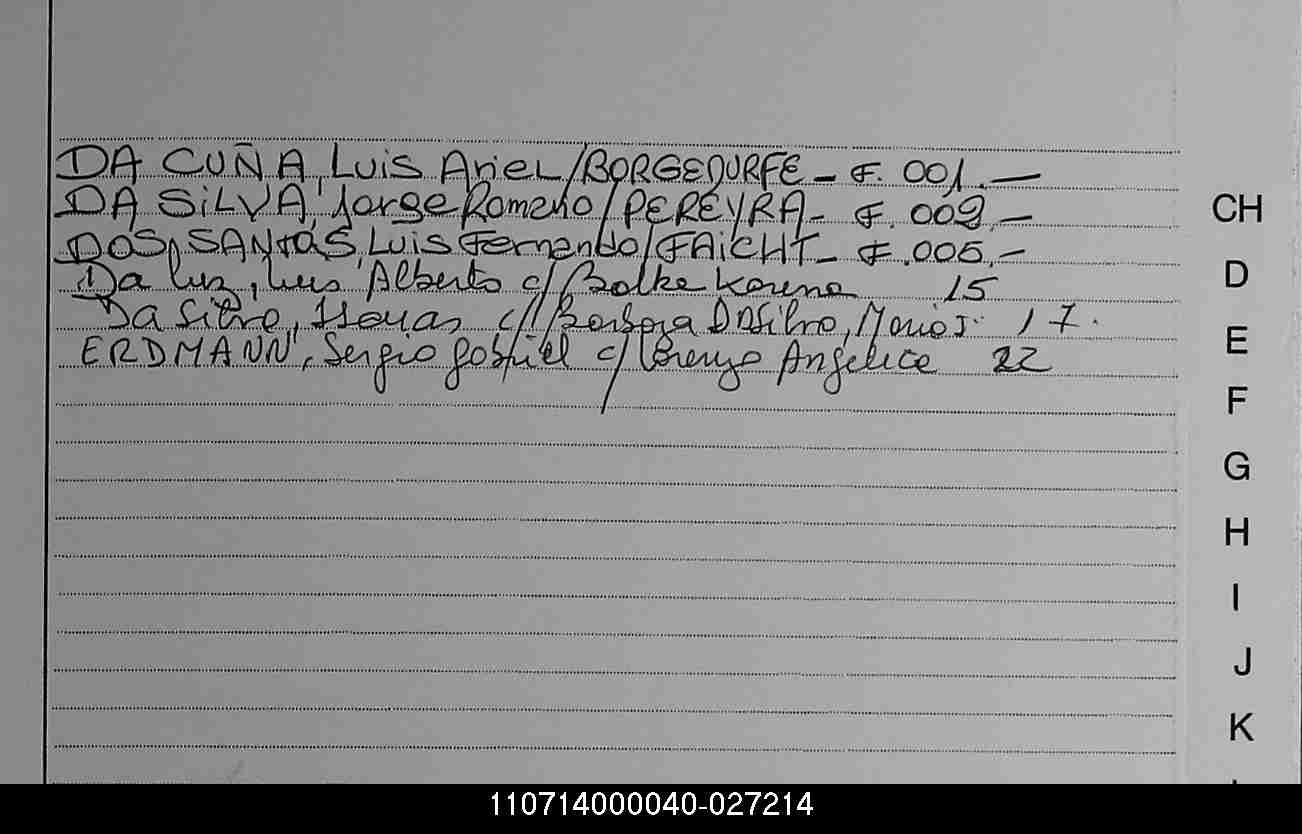 DA CUÑA, Luis Ariel/BORGEDURFE - F. 001.-
DA SiLVA, Jorge Romeno/PEREYRA - F. 009.-
DOS SANTOS, Luis Fernando/FAiCHT - F. 005.-
Da luz, Luis Alberto c/ Bolke Karena 15
Da Silva, c/ Barboza Da Silva, Maria 17.
ERDMANN, Sergio Gabriel c/ Lorenzo Angelica 22
CH
D
E
F
G
H
I
J
K
110714000040-027214